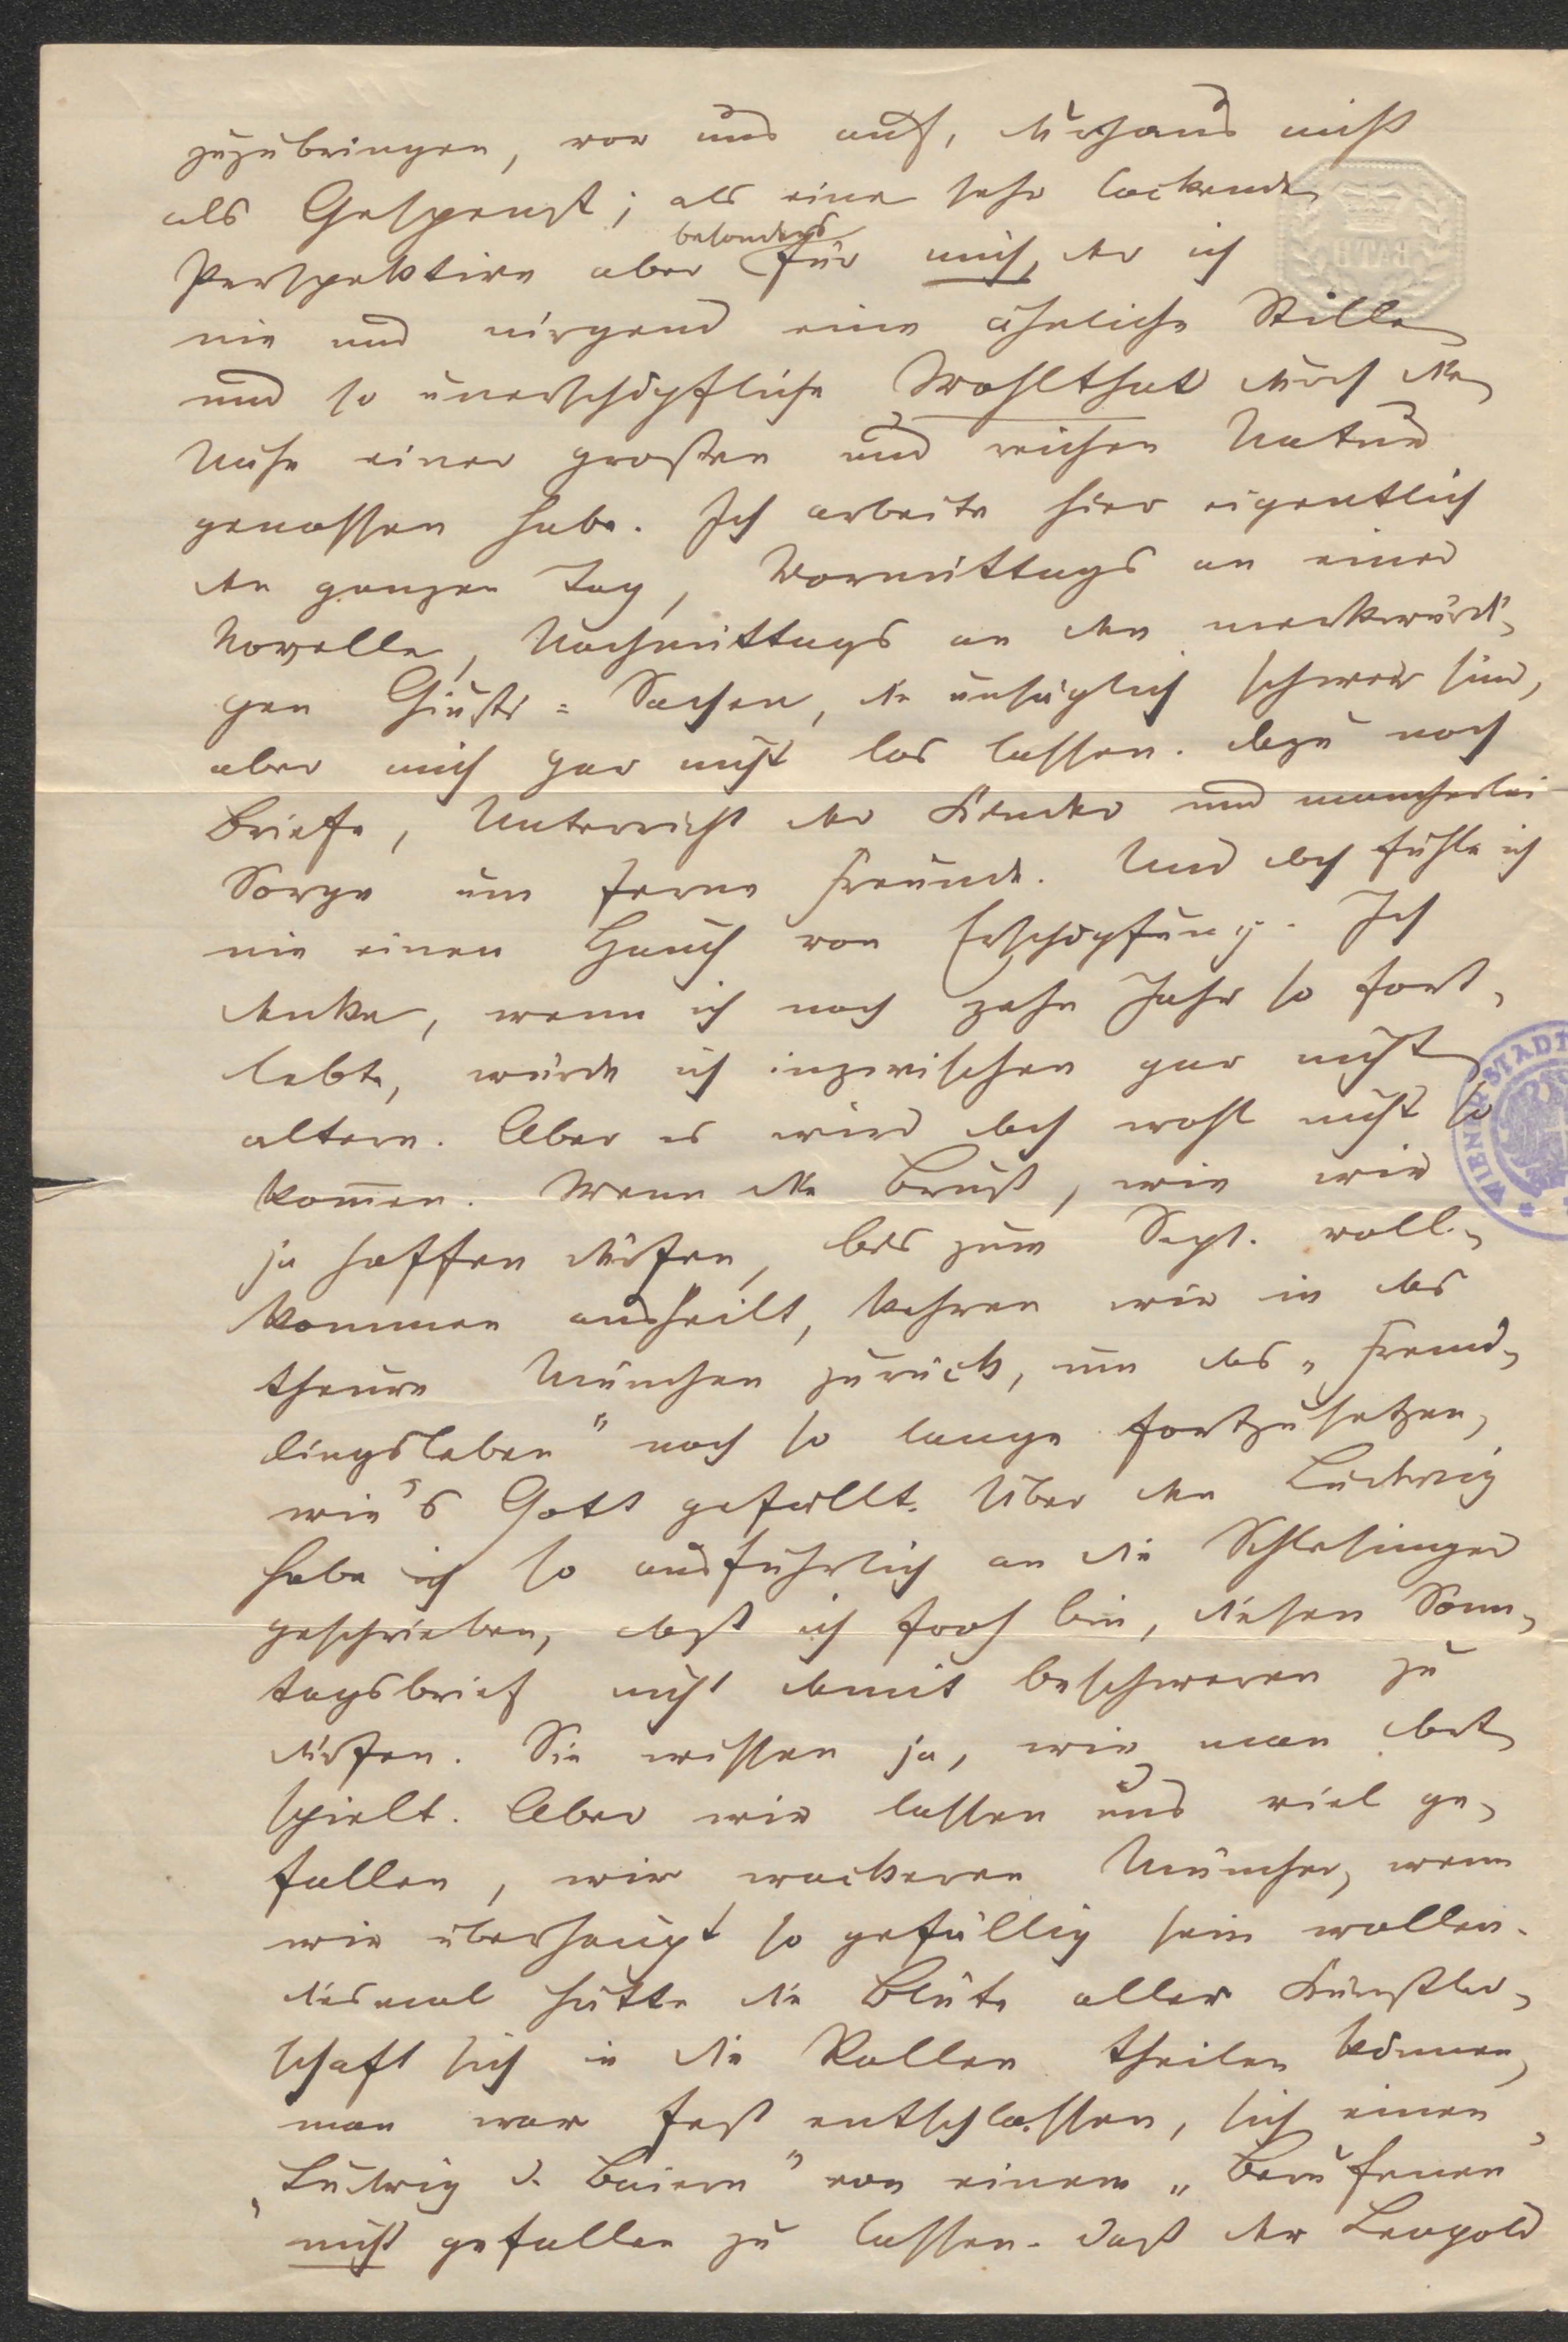 zuzubringen, vor uns auf, durchaus nicht
als Gespenst; als eine sehr lockende
Perspektive aber besonders für mich, der ich
nie und nirgend eine ähnliche Stille
und so unerschöpfliche Wohlthat durch die
Nähe einer großen und reichen Natur
genossen habe. Ich arbeite hier eigentlich
den ganzen Tag, Vormittags an einer
Novelle, Nachmittags an den merkwürdi-
gen Giusti-Sachen, die unsäglich schwer sind,
aber mich gar nicht los lassen. dazu noch
Briefe, Unterricht der Kinder und mancherlei
Sorge um ferne Freunde. Und doch fühle ich
nie einen Hauch von Erschöpfung. Ich
denke, wenn ich noch zehn Jahr so fort-
lebte, würde ich inzwischen gar nicht
altern. Aber es wird doch wohl nicht so
kom̄en. Wenn die Brust, wie wir
ja hoffen dürfen, bis zum Sept. voll-
kommen ausheilt, kehren wir in das
theure München zurück, um das „Fremd-
lingsleben" noch so lange fortzusetzen,
wie's Gott gefällt. Über den Ludwig
habe ich so ausführlich an die Schlesinger
geschrieben, daß ich froh bin, diesen Sonn-
tagsbrief nicht damit beschweren zu
dürfen. Sie wissen ja, wie man dort
spielt. Aber wir lassen uns viel ge-
fallen, wir wackeren Münchner, wenn
wir überhaupt so gefällig sein wollen.
diesmal hätte die Blüte aller Künstler-
schaft sich in die Rollen theilen können,
man war fest entschlossen, sich einen
„Ludwig d. Baiern" von einem „Berufenen"
nicht gefallen zu lassen. Daß der Leopold
WIENER STADT
BATH